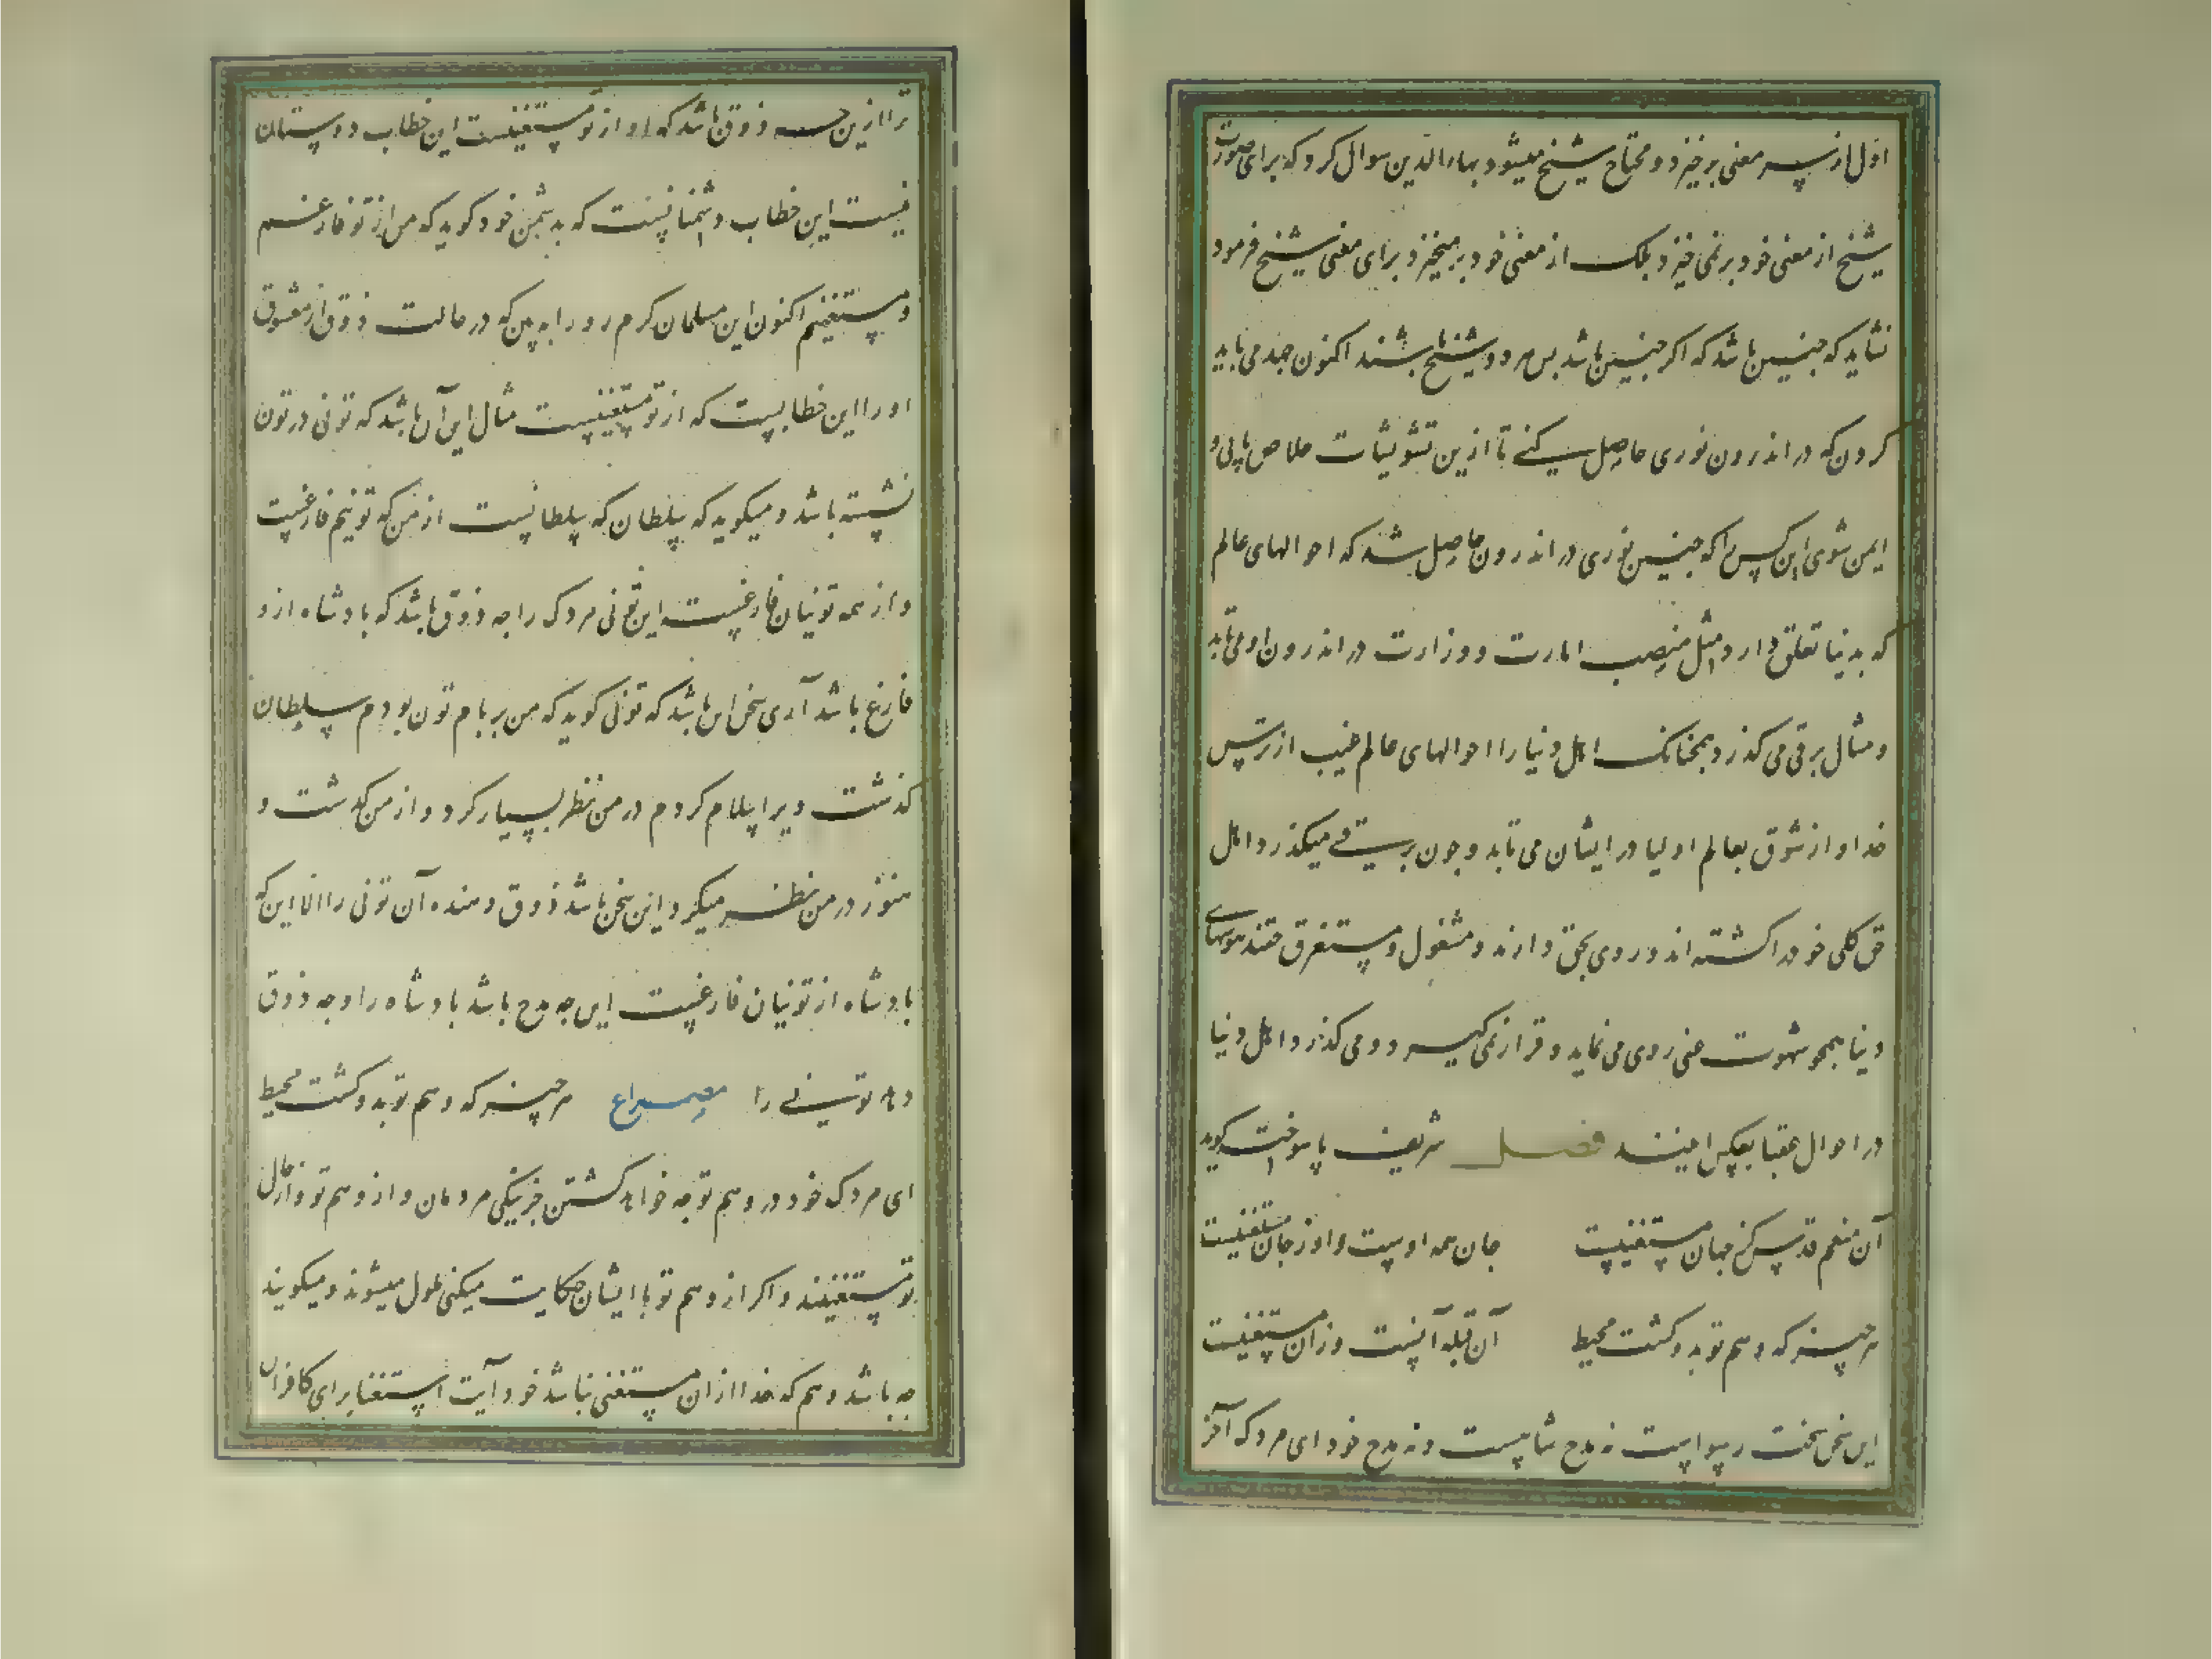 اول از سر معنی برخیزد و محتاج شیخ میشود بهاءالدین سوال کرد که برای صورت
شیخ از معنی خود برنمی خیزد بلک از معنی خود برمیخیزد برای معنی شیخ فرمود
نشاید که جنین باشد که اکر جنین باشد بس هر دو شیخ باشند اکنون جهد می باید
کردن که در اندرون نوری حاصل کنی تا ازین تشویشات خلاص یابی و
ایمن شوی این کس را که جنین نوری در اندرون حاصل شد که احوالهای عالم
که بدنیا تعلق دارد مثل منصب امارت و وزارت در اندرون او می تابد
و مثال برقی می کذرد همجنانک اهل دنیا را احوالهای عالم غیب از ترس
خدا و از شوق بعالم اولیا در ایشان می تابد و جون برقی میکذرد اهل
حق کلی خود را کشته اند و روی بحق دارند و مشغول و مستغرق حقند هوسهای
دنیا همجو شهوت عنی روی می نماید و قرار نمی کیرد و می کذرد اهل دنیا
در احوال عقبا بعکس اینند فصل شریف پای سوخت کوید
آن منعم قدس کز جهان مستغنیست جان همه اوست و او ز جان مستغنیست
هر چیز که وهم تو بدو کشت محیط آن قبله آنست وزان مستغنیست
این سخن سخت رسواست نه مدح شاهست و نه مدح خود ای مردک آخر
ترا ازین جه ذوق باشد که او از تو مستغنیست این خطاب دوستان
نیست این خطاب دشمنانست که بدشمن خود کوید که من از تو فارغم
و مستغنیم اکنون این مسلمان کرم رو را ببین که در حالت ذوق از معشوق
او را این خطابست که از تو مستغنیست مثال این آن باشد که تونی در تون
نشسته باشد و میکوید که سلطان که سلطانست از من که تونیم فارغست
و از همه تونیان فارغست این تونی مردک را جه ذوق باشد که بادشاه ازو
فارغ باشد آری سخن این باشد که تونی کوید که من بر بام تون بودم سلطان
کذشت ویرا سلام کردم در من نظر بسیار کرد و از من کذشت و
هنوز در من نظر میکرد این سخن باشد ذوق دهنده آن تونی را الا این که
بادشاه از تونیان فارغست این جه مدح باشد بادشاه را و جه ذوق
دهد تونی را مصراع هر چیز که وهم تو بدو کشت محیط
ای مردک خود در وهم تو جه خواهد کشتن جز بنکی مردمان و از وهم تو و از خیال
تو مستغنیند و اکر از وهم تو با ایشان حکایت میکنی ملول میشوند و میکویند
جه باشد وهم که خدا ازان مستغنی نباشد خود آیت استغنا برای کافران